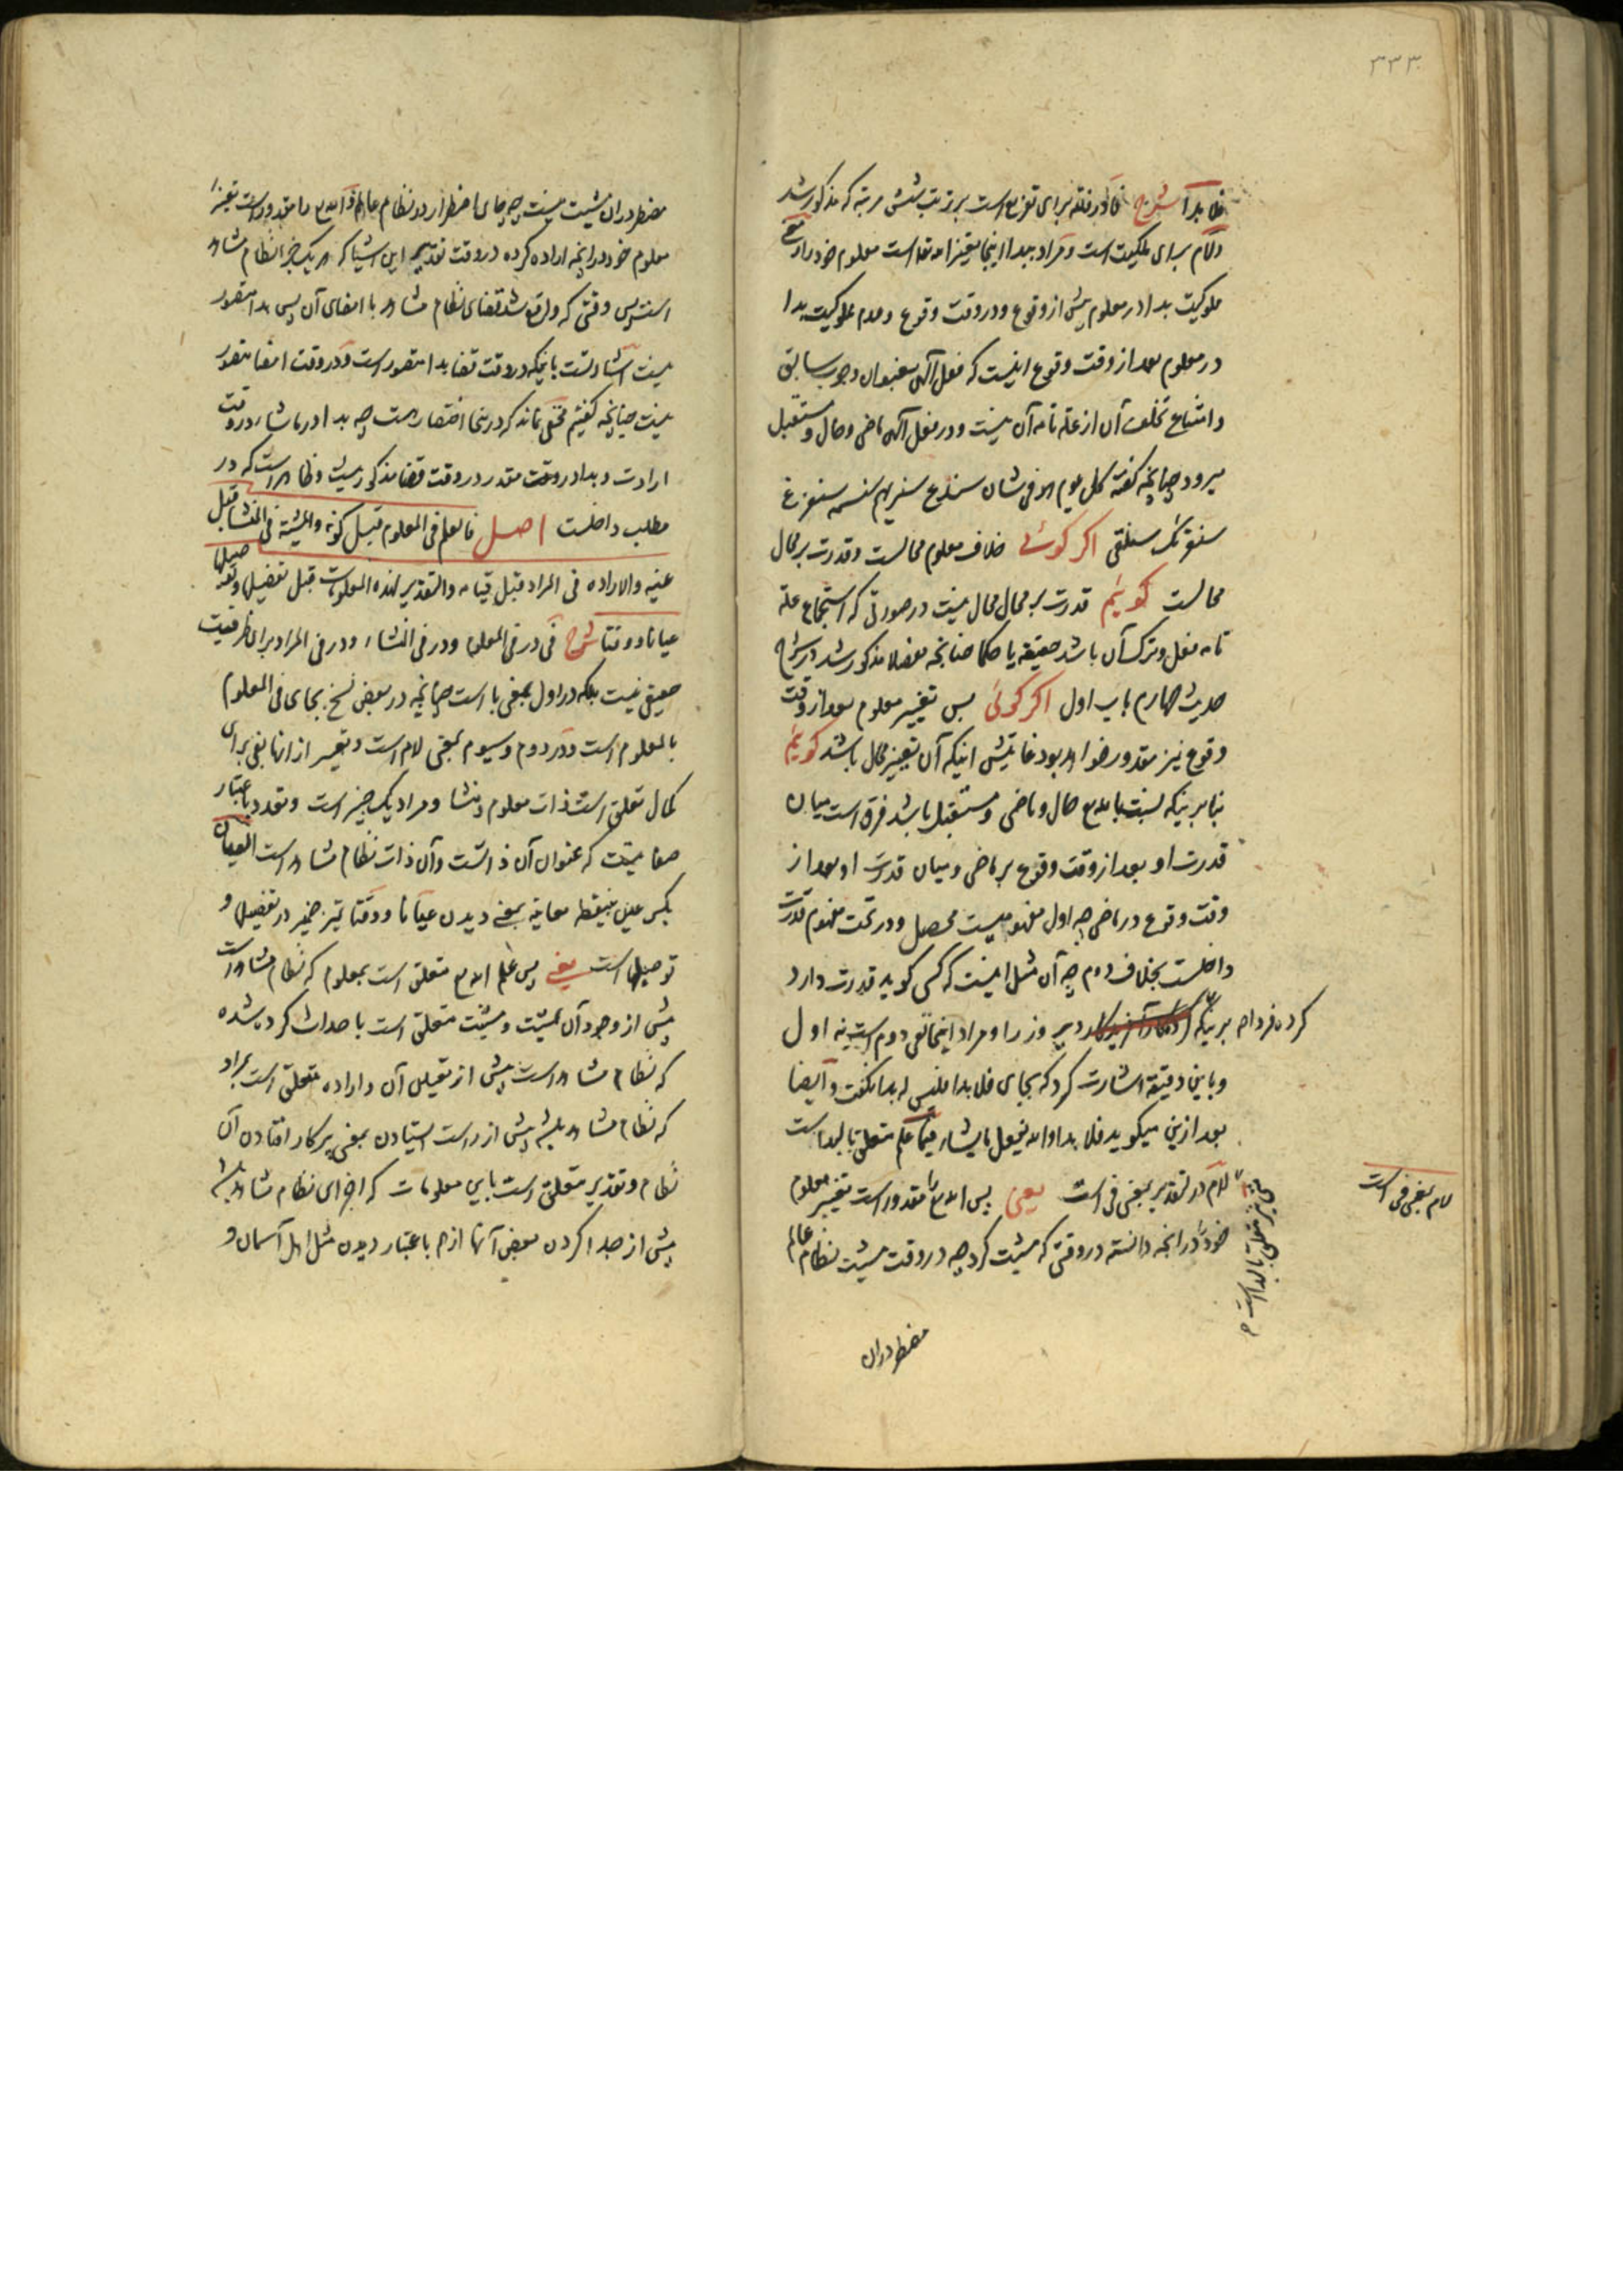 ۳۳۳
فلا بدا شرح فا در فلله برای تفریع است بر ترتیب شش مرتبه که مذکور شد
و لام برای ملکیت است و مراد ببدا اینجا تغییر الله تعالی است معلوم خود را و
ملوکیت بدا در معلوم پیش از وقوع و در وقت وقوع و عدم مملوکیت بدا
در معلوم بعد از وقت وقوع اینست که فعل الهی بعنوان وجوب سابق
و امتناع تخلف آن از علة تامه آن نیست و در فعل الهی ماضی و حال و مستقبل
میرود چنانچه گفته کل یوم هو فی شان سندع سنریهم سنسمه سنفرغ
سنقرئک سنلقی اگر گوئی خلاف معلوم محالست و قدرت بر محال
محالست گوئیم قدرت بر محال محال نیست در صورتی که استجماع علة
تامه فعل و ترک آن باشد حقیقة یا حکما چنانچه مفصلا مذکور شد در شرح
حدیث چهارم باب اول اگر گوئی پس تغییر معلوم بعد از وقت
وقوع نیز مقدور خواهد بود غایتش اینکه آن تغییر محال باشد گوئیم
بنابر اینکه نسبت بالله تع حال و ماضی و مستقبل باشد فرق است میان
قدرت او بعد از وقت وقوع بر ماضی و میان قدرت او بعد از
وقت وقوع در ماضی چه اول مفهومیست محصل و در تحت مفهوم قدرت
داخلست بخلاف دوم چه آن مثل اینست که کسی گوید قدرت دارد
کردن فردا هم بر اینکه دیروز را و مراد اینجا نفی دوم است نه اول
و باین دقیقه اشارت کرد که بجای فلا بدا فلیس له بدا نگفت و ایضا
بعد ازین میگوید فلا بدا و الله یفعل ما یشاء فیما علم متعلق بالبدا است
لام در لتقدیر بمعنی فی است یعنی پس الله تع را مقدور است تغییر معلوم
خود در آنچه دانسته در وقتی که مشیت کرد چه در وقت مشیت نظام عالم
لام بمعنی فی است
مضطر دران
مضطر دران مشیت نیست چه جای اضطرار در نظام عالم و الله تع را مقدور است تغییر
معلوم خود در آنچه اراده کرده در وقت تقدیر این اشیا که هر یک جزء نظام مشاهد
است پس وقتی که واقع شد قضای نظام مشاهد با امضای آن پس بدا متصور
نیست اشارتست باینکه در وقت قضا بدا متصور است و در وقت امضا متصور
نیست چنانچه گفتیم مخفی نماند که درینجا اختصار هست چه بدا در ما شاء در وقت
ارادت و بدا در وقت مقدر در وقت قضا مذکور نیست و ظاهر است که در
مطلب داخلست اصل فالعلم فی المعلوم قبل کونه و المشیة فی المنشا قبل
عینه و الاراده فی المراد قبل قیامه و التقدیر لهذه المعلومات قبل تفصیلها و توصیلها
عیانا و وقتا شرح فی در فی المعلوم و در فی المنشاء و در فی المراد برای ظرفیت
حقیقی نیست بلکه در اول بمعنی با است چنانچه در بعض نسخ بجای فی المعلوم
بالمعلوم است و در دوم و سیوم بمعنی لام است و تعبیر از انها بفی برای
کمال تعلق است ذات معلوم و منشا و مراد یک چیز است و تعدد باعتبار
صفاتیست که عنوان آن ذاتست و آن ذات نظام مشاهد است العیان
بکسر عین بینقطه معاینه بمعنی دیدن عیانا و وقتا تمیز ضمیر در تفصیلها و
توصیلها است یعنی پس علم الله تع متعلق است بمعلوم که نظام مشاهد است
پیش از وجود آن و مشیت متعلق است باحداث کرده شده
که نظام مشاهد است پیش از تعیین آن و اراده متعلق است بمراد
که نظام مشاهد باشد پیش از راست ایستادن بمعنی پرکار افتادن آن
نظام و تقدیر متعلق است باین معلومات که اجزای نظام مشاهد باشد
پیش از جدا کردن بعض آنها از هم باعتبار دیدن مثل اهل آسمان و